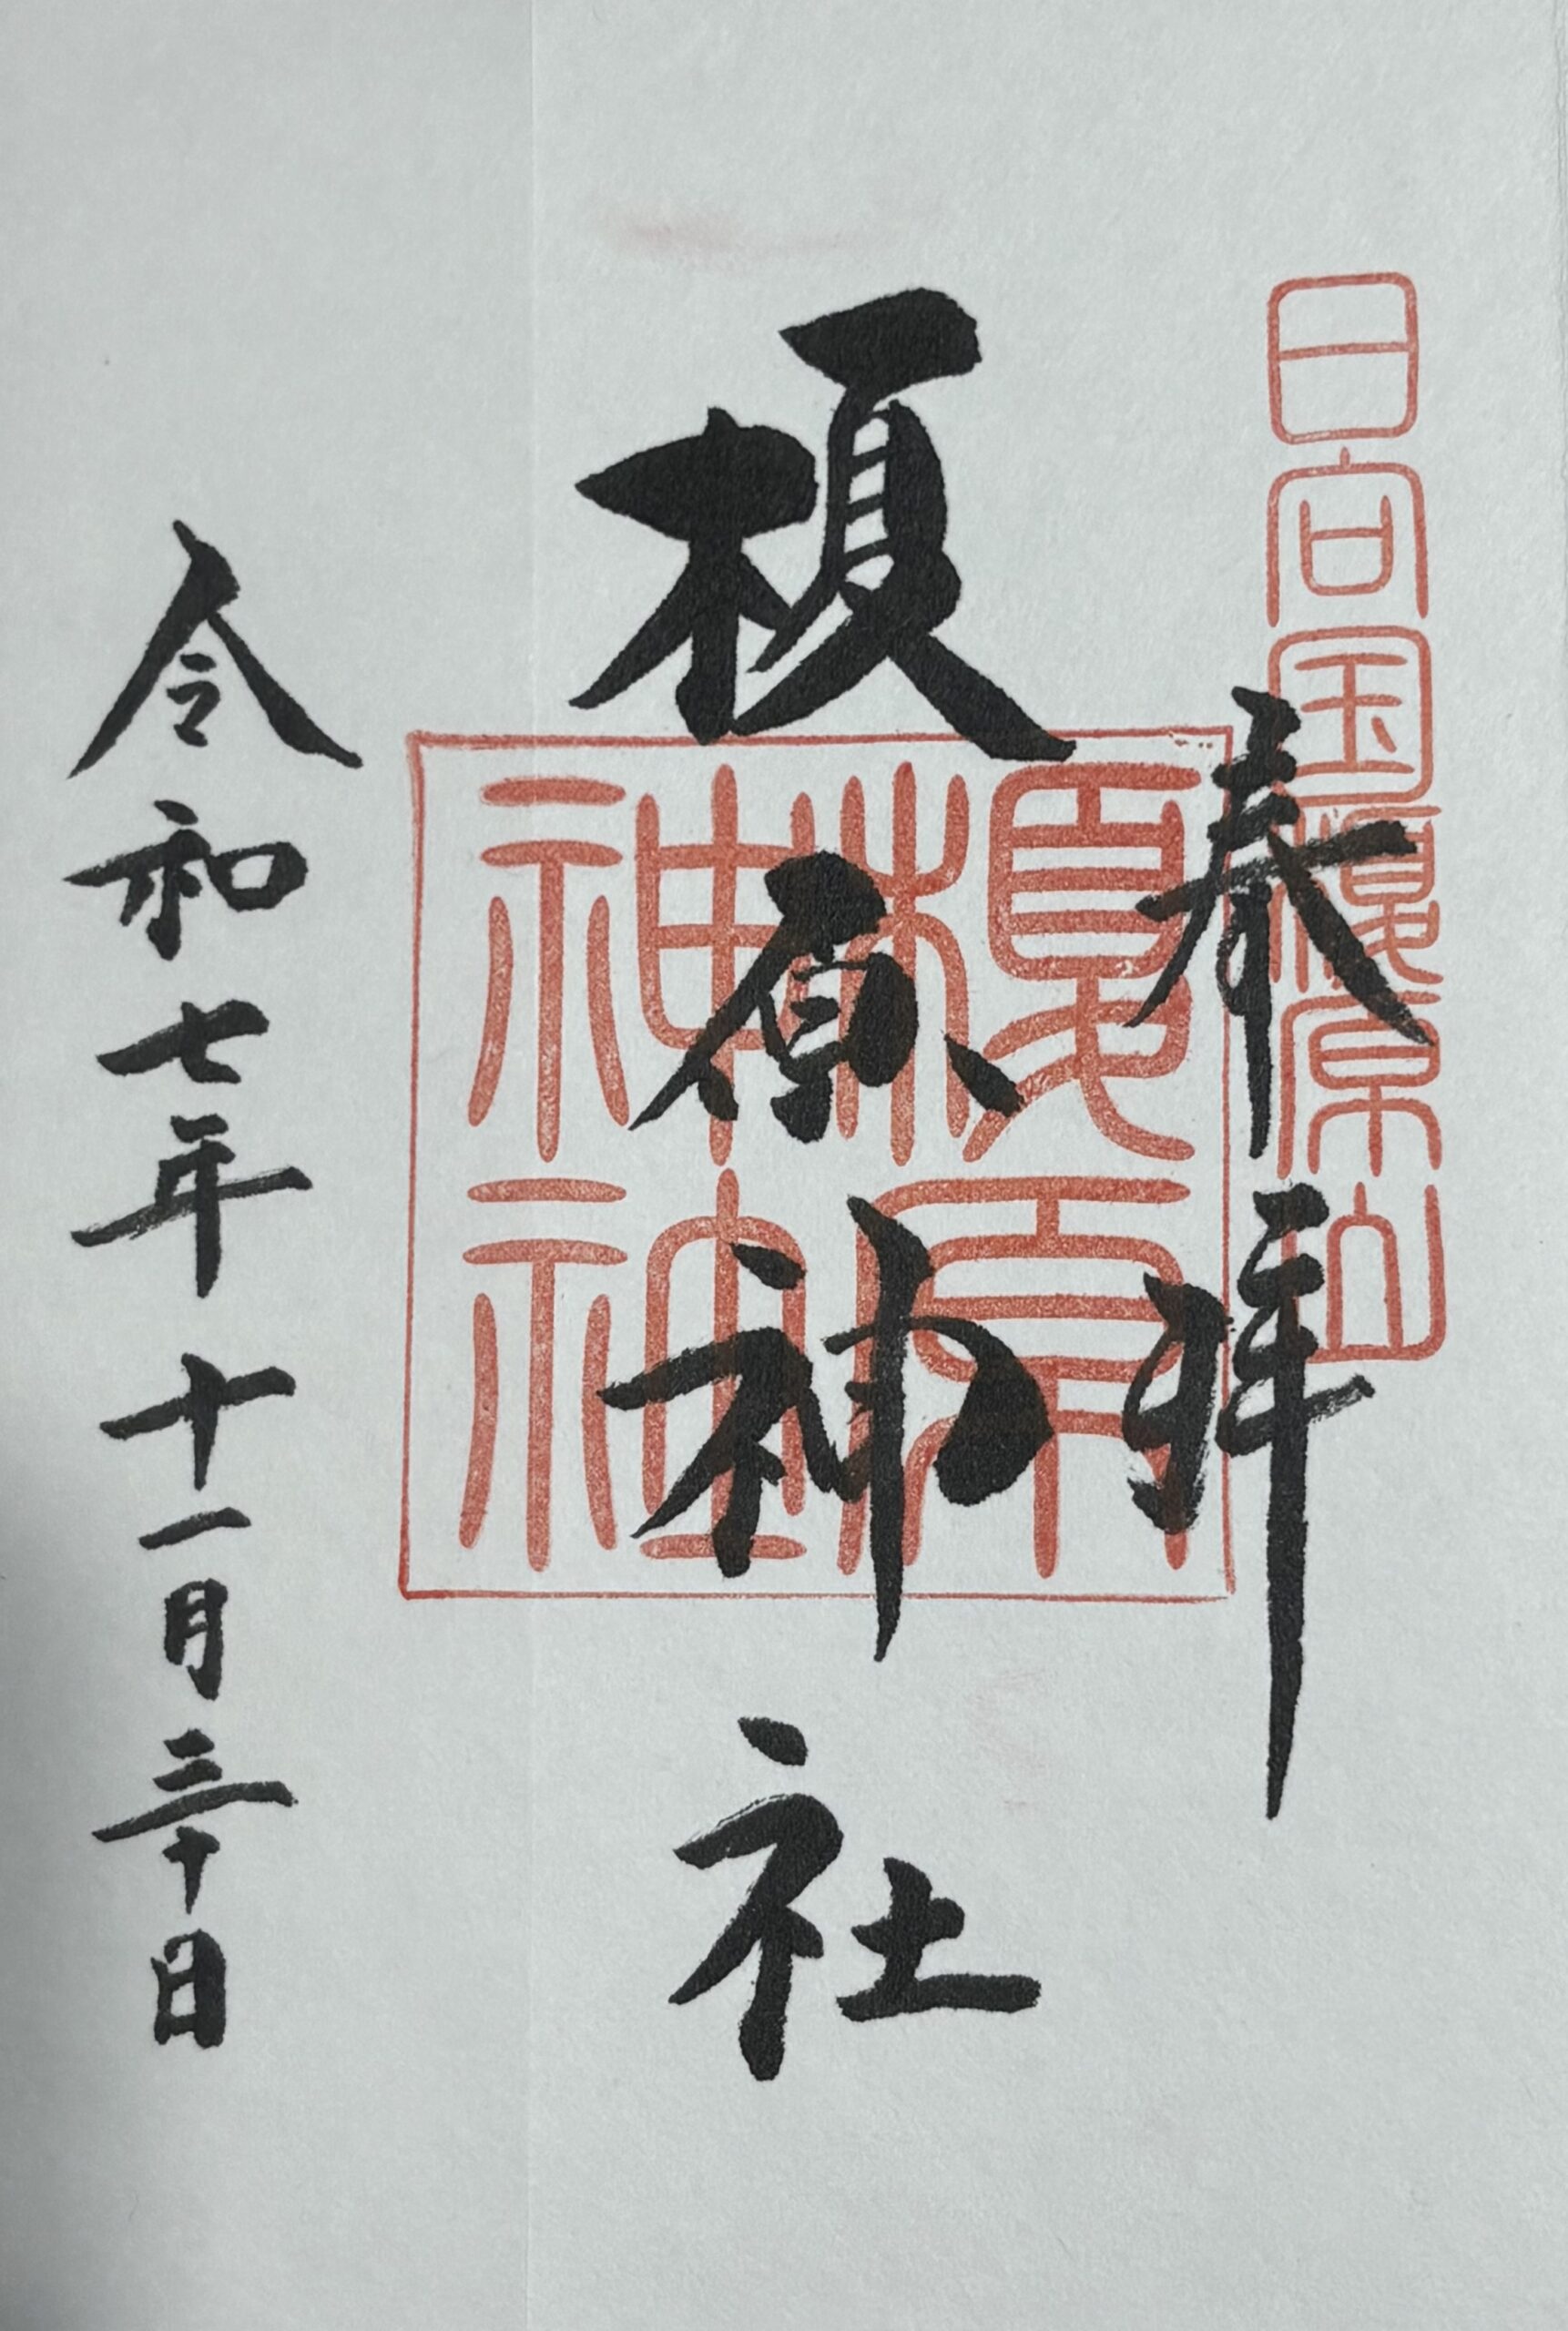 日向国榎原山
奉拝
榎原神社
榎原神社
令和七年十一月三十日